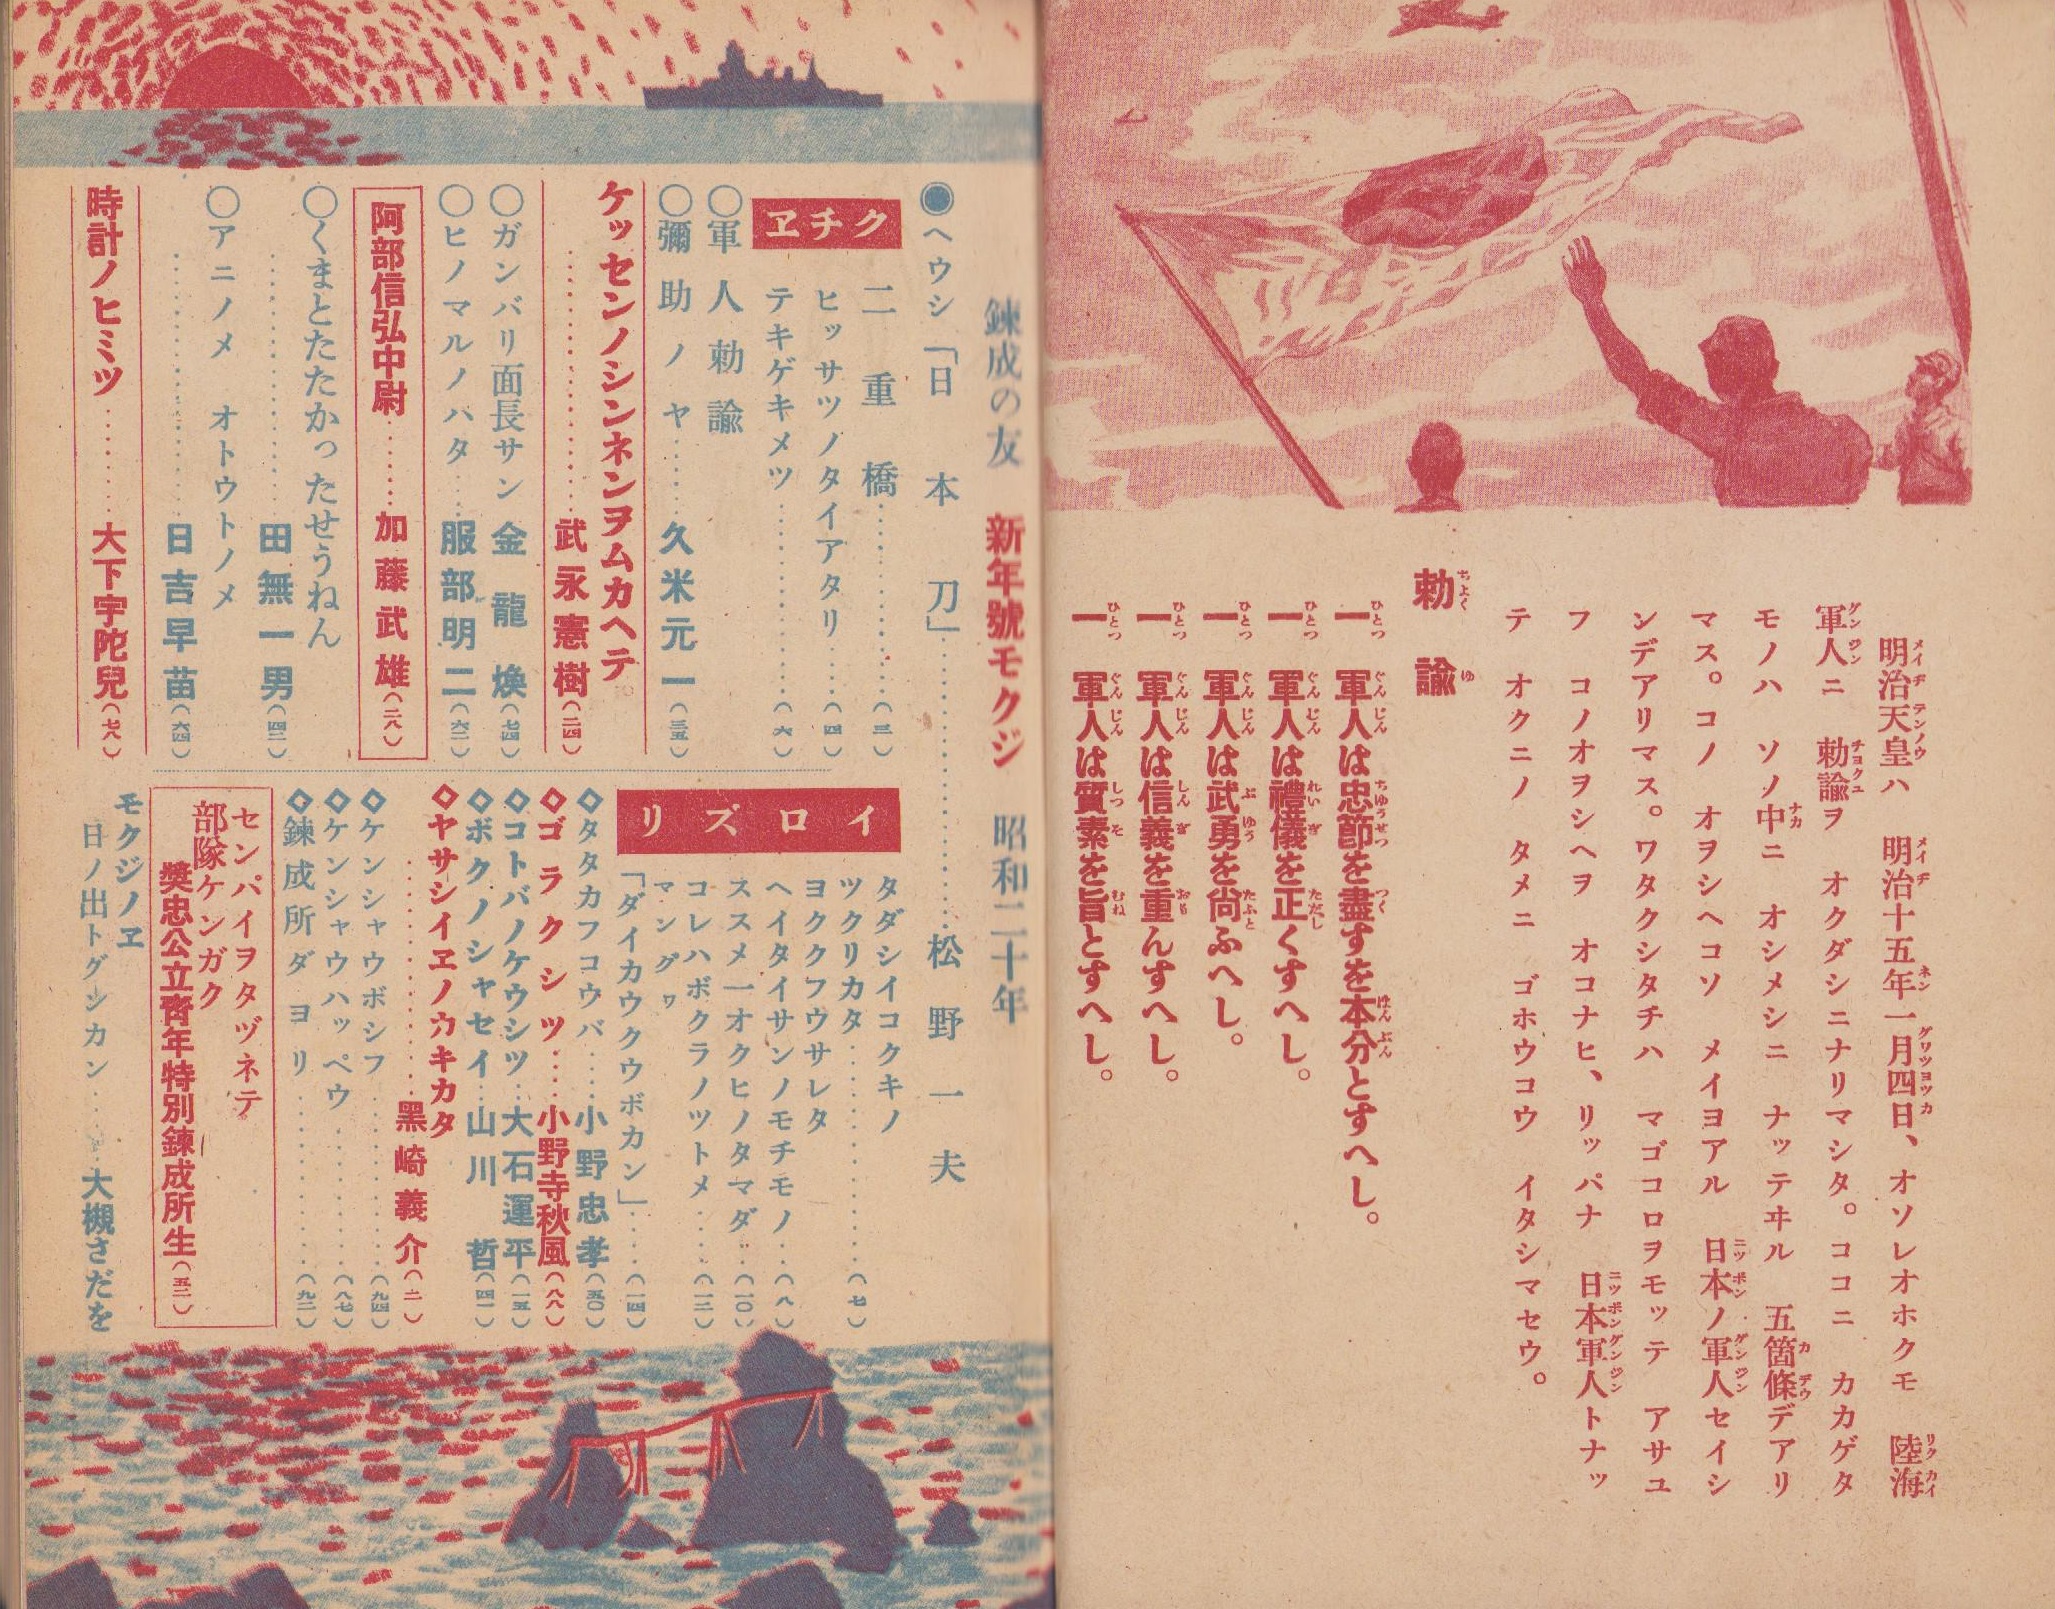 明治天皇ハ 明治十五年一月四日、オソレオホクモ 陸海
軍人ニ 勅諭ヲ オクダシニナリマシタ。ココニ カカゲタ
モノハ ソノ中ニ オシメシニ ナッテヰル 五箇條デアリ
マス。コノ オヲシヘコソ メイヨアル 日本ノ軍人セイシ
ンデアリマス。ワタクシタチハ マゴコロヲモッテ アサユ
フ コノオヲシヘヲ オコナヒ、リッパナ 日本軍人トナッ
テ オクニノ タメニ ゴホウコウ イタシマセウ。
勅諭
一 軍人は忠節を盡すを本分とすへし。
一 軍人は禮儀を正くすへし。
一 軍人は武勇を尚ふへし。
一 軍人は信義を重んすへし。
一 軍人は質素を旨とすへし。
錬成の友 新年號モクジ 昭和二十年
◉ヘウシ「日本刀」…………松野一夫
クチヱ
二重橋…………(三)
ヒッサツノタイアタリ…………(四)
テキゲキメツ…………(六)
○軍人勅諭
○彌助ノヤ……久米元一(三五)
ケッセンノシンネンヲムカヘテ
…………武永憲樹(二四)
○ガンバリ面長サン 金龍煥(七四)
○ヒノマルノハタ…服部明二(六二)
阿部信弘中尉……加藤武雄(二八)
○くまとたたかったせうねん
…………田無一男(四二)
○アニノメ オトウトノメ
…………日吉早苗(六四)
時計ノヒミツ……大下宇陀兒(七六)
イロズリ
タダシイコクキノ
ツクリカタ…………(七)
ヨククフウサレタ
ヘイタイサンノモチモノ…(八)
ススメ一オクヒノタマダ…(一〇)
コレハボクラノツトメ…(一二)
マングワ
「ダイカウクウボカン」…(一四)
◇タタカフコウバ……小野忠孝(五〇)
◇ゴラクシツ……小野寺秋風(八八)
◇コトバノケウシツ…大石運平(一五)
◇ボクノシャセイ…山川哲(四一)
◇ヤサシイヱノカキカタ
…………黑崎義介(二一)
◇ケンシャウボシフ…………(九四)
◇ケンシャウハッペウ…………(八七)
◇鍊成所ダヨリ…………(九二)
センパイヲタヅネテ
部隊ケンガク
奬忠公立靑年特別鍊成所生(五二)
モクジノヱ
日ノ出トグンカン……大槻さだを